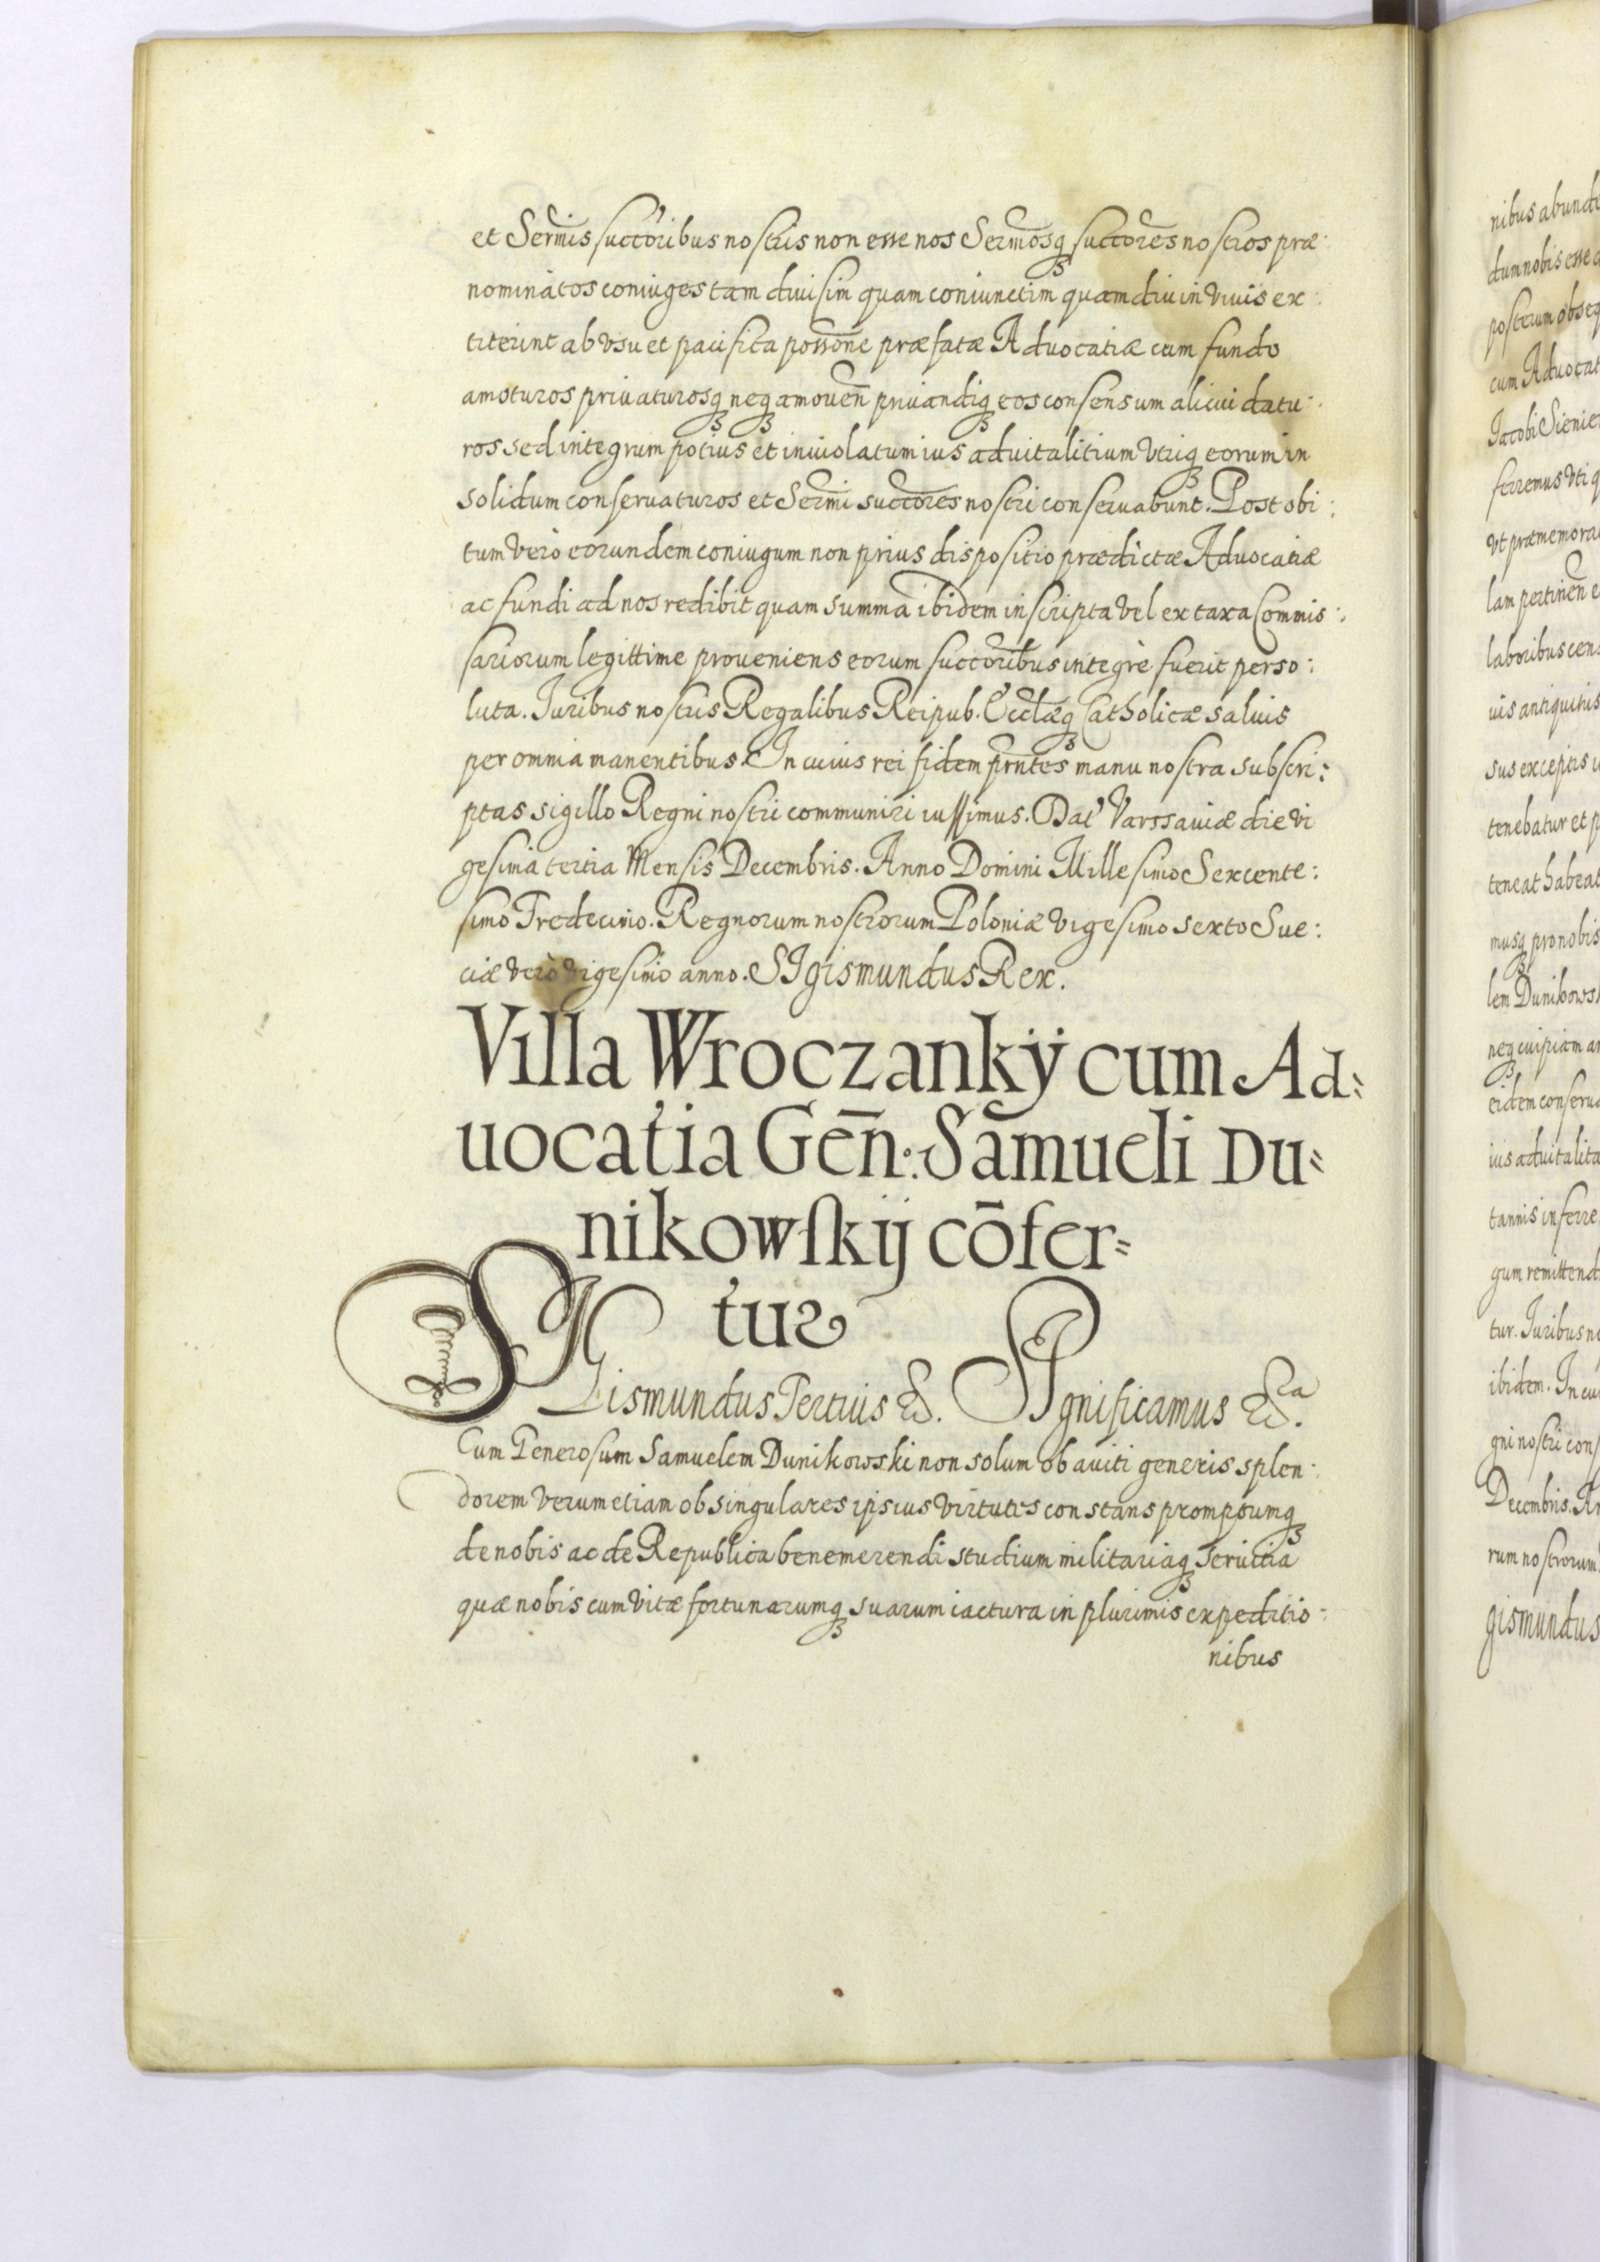 et Serm̃is succõribus nostris non esse nos Serm̃osq succõres nostros præ:
nominàtos coniuges tam diuisim quam coniunctim quamdiu in viuis ex:
titerint ab vsu et pacifica poss̃one præfatæ Aduocatiæ cum fundo
amoturos priuaturosq neq amouen̄ priuandiq eos consensum alicui datu:
ros sed integrum potius et inuiolatum ius aduitalitium vtriq eorum in
solidum conseruaturos et Serm̃i succõres nostri conseruabunt. Post obi:
tum verò eorundem coniugum non prius dispositio prædictæ Aduocatiæ
ac fundi ad nos redibit quam summa ibidem inscripta vel ex taxa Commis:
sariorum legittime proueniens eorum succõribus integrè fuerit perso:
luta. Juribus nostris Regalibus Reipub. Eccl̃æq Catholicæ saluis
per omnia manentibus. In cuius rei fidem prñtes manu nostra subscri:
ptas sigillo Regni nostri communiri iussimus. Dat' Varssauiæ die vi
gesima tertia Mensis Decembris. Anno Domini Millesimo Sexcente:
simo Tredecimo. Regnorum nostrorum Poloniæ vigesimo sexto Sue:
ciæ verò vigesimo anno. SIgismundus Rex.
Villa Wroczankÿ cum Ad=
uocatia Gen̄: Samueli Du=
nikowskij cōfer=
tur
SIGismundus Tertius &. SIgnificamus &a.
Cum Generosum Samuelem Dunikowski non solum ob auiti generis splen:
dorem verum etiam ob singulares ipsius virtutes constans promptumq
de nobis ac de Republica benemerendi studium militariaq seruitia
quæ nobis cum vitæ fortunarumq suarum iactura in plurimis expeditio:
nibus
nibus abund
dum nobis esse
posterum obseq
cum Aduocat
Jacobi Sienie
ferremus vti q
vt præmemora
lam pertinen̄ e
laboribus cens
uis antiquitus
sus exceptis
tenebatur et p
teneat habeat
musq pro nobis
lem Dunikowsk
neq cuipiam am
eidem conserua
ius aduitalita
tannis inferre
gum remittend
tur. Juribus no
ibidem. In cui
gni nostri cons
Decembris. An
rum nostrorum
gismundus